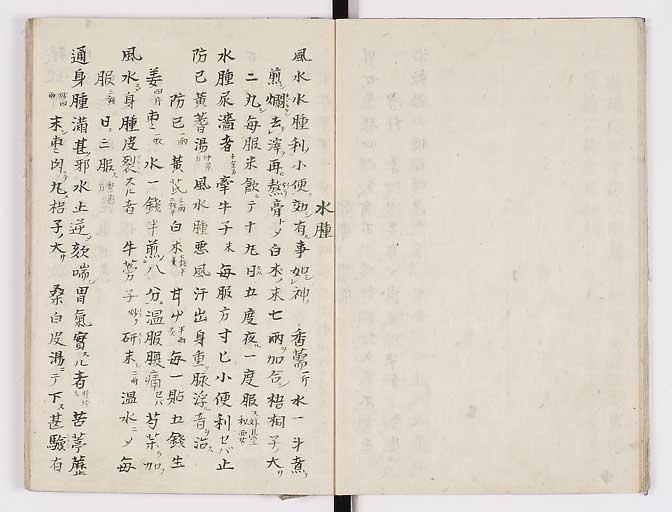 水腫
風水水腫利小便効有事如神 香薷一斤水一斗煮
煎爛去滓再熬膏トメ白朮末七兩加合梧桐子ノ大
ニ丸毎服米飲ニテ十丸日五度夜一度服ス外臺秘要
水腫尿濇者 牽牛子末毎服方寸匕小便利セバ止
防已黄蓍湯 風水腫悪風汗出身重脉浮者治ス
防已一兩黄芪 白朮 甘草 毎一貼五錢生
姜四片棗一枚水一錢半煎八分温服腰痛セバ芍薬加
風水身腫皮裂スル者牛蒡子炒研末二兩温水ニメ毎
服二錢日三服ス
通身腫滿甚邪水上逆欬喘胃氣實スル者 苦葶藶
炒四兩末棗肉丸梧子ノ大 桑白皮湯ニテ下ス甚験有